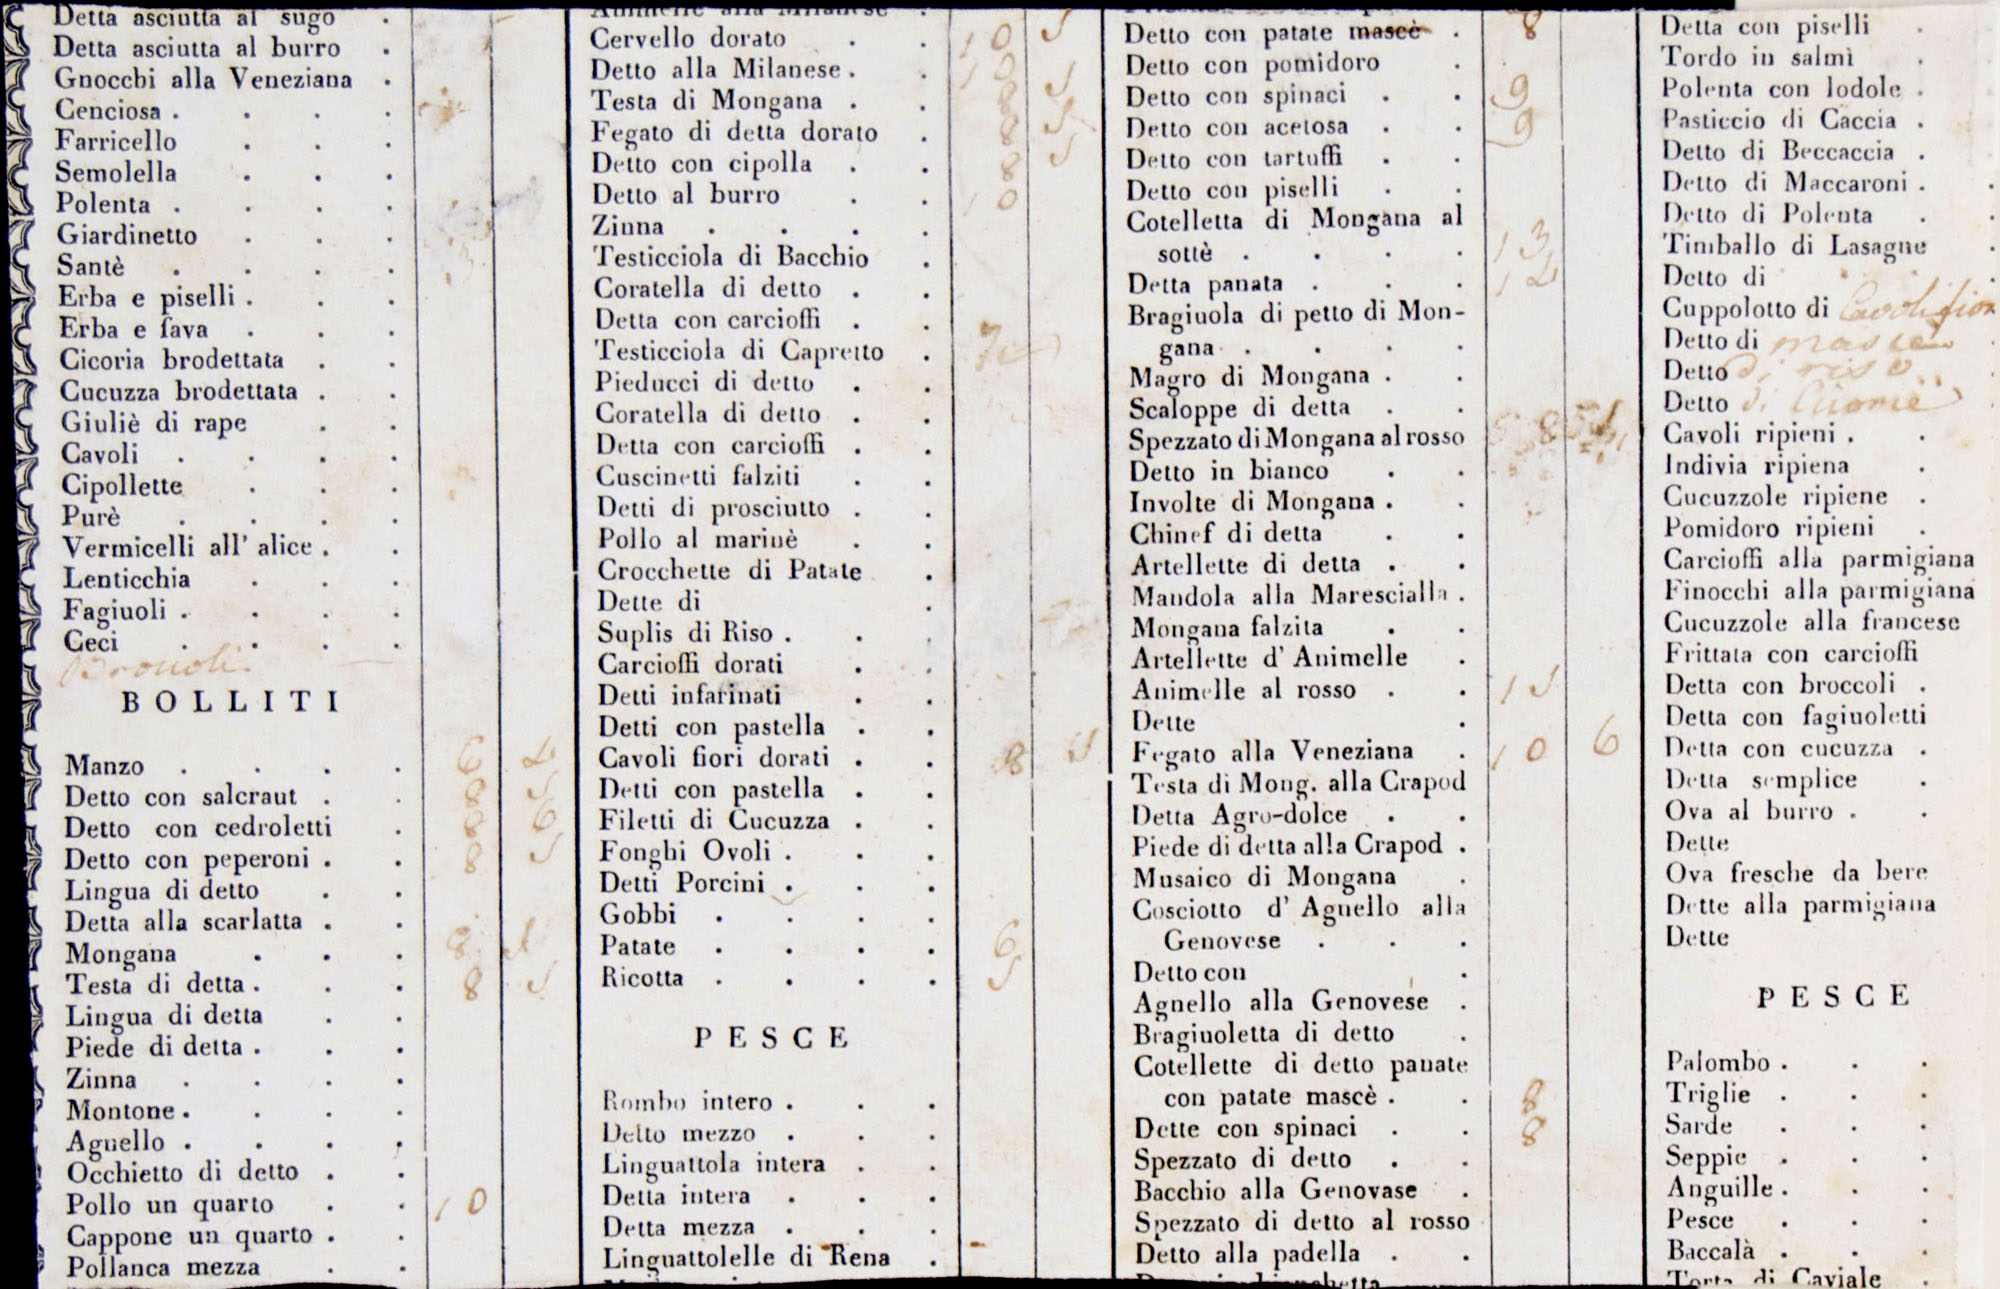 Detta asciutta al sugo
Detta asciutta al burro
Gnocchi alla Veneziana
Cenciosa
Farricello
Semolella
Polenta
Giardinetto
Santè
Erba e piselli
Erba e fava
Cicoria brodettata
Cucuzza brodettata
Giuliè di rape
Cavoli
Cipollette
Purè
Vermicelli all' alice
Lenticchia
Fagiuoli
Ceci
BOLLITI
Manzo 6 4
Detto con salcraut 8 5
Detto con cedroletti 8 6
Detto con peperoni 8 5
Lingua di detto
Detta alla scarlatta
Mongana 8
Testa di detta 8 5
Lingua di detta
Piede di detta
Zinna
Montone
Agnello
Occhietto di detto
Pollo un quarto 10
Cappone un quarto
Pollanca mezza
Animelle alla Milanese
Cervello dorato 10 5
Detto alla Milanese 10 5
Testa di Mongana 8 5
Fegato di detta dorato 8 5
Detto con cipolla 8 5
Detto al burro 10
Zinna
Testicciola di Bacchio
Coratella di detto
Detta con carcioffi
Testicciola di Capretto
Pieducci di detto
Coratella di detto
Detta con carcioffi
Cuscinetti falziti
Detti di prosciutto
Pollo al marinè
Crocchette di Patate
Dette di
Suplis di Riso
Carcioffi dorati
Detti infarinati
Detti con pastella
Cavoli fiori dorati 8 5
Detti con pastella
Filetti di Cucuzza
Fonghi Ovoli
Detti Porcini
Gobbi
Patate 6
Ricotta 5
PESCE
Rombo intero
Detto mezzo
Linguattola intera
Detta intera
Detta mezza
Linguattolelle di Rena
Detto con patate mascè 8
Detto con pomidoro
Detto con spinaci 9
Detto con acetosa 9
Detto con tartuffi
Detto con piselli
Cotelletta di Mongana al
sottè 13
Detta panata 14
Bragiuola di petto di Mon-
gana
Magro di Mongana
Scaloppe di detta
Spezzato di Mongana al rosso
Detto in bianco
Involte di Mongana
Chinef di detta
Artellette di detta
Mandola alla Marescialla
Mongana falzita
Artellette d' Animelle
Animelle al rosso 15
Dette
Fegato alla Veneziana 10 6
Testa di Mong. alla Crapod
Detta Agro-dolce
Piede di detta alla Crapod
Musaico di Mongana
Cosciotto d' Agnello alla
Genovese
Detto con
Agnello alla Genovese
Bragiuoletta di detto
Cotellette di detto panate
con patate mascè 8
Dette con spinaci 8
Spezzato di detto
Bacchio alla Genovase
Spezzato di detto al rosso
Detto alla padella
Detta con piselli
Tordo in salmì
Polenta con lodole
Pasticcio di Caccia
Detto di Beccaccia
Detto di Maccaroni
Detto di Polenta
Timballo di Lasagne
Detto di
Cuppolotto di Cavoli fior
Detto di mascè
Detto di riso
Detto di
Cavoli ripieni
Indivia ripiena
Cucuzzole ripiene
Pomidoro ripieni
Carcioffi alla parmigiana
Finocchi alla parmigiana
Cucuzzole alla francese
Frittata con carcioffi
Detta con broccoli
Detta con fagiuoletti
Detta con cucuzza
Detta semplice
Ova al burro
Dette
Ova fresche da bere
Dette alla parmigiana
Dette
PESCE
Palombo
Triglie
Sarde
Seppie
Anguille
Pesce
Baccalà
Torta di Caviale